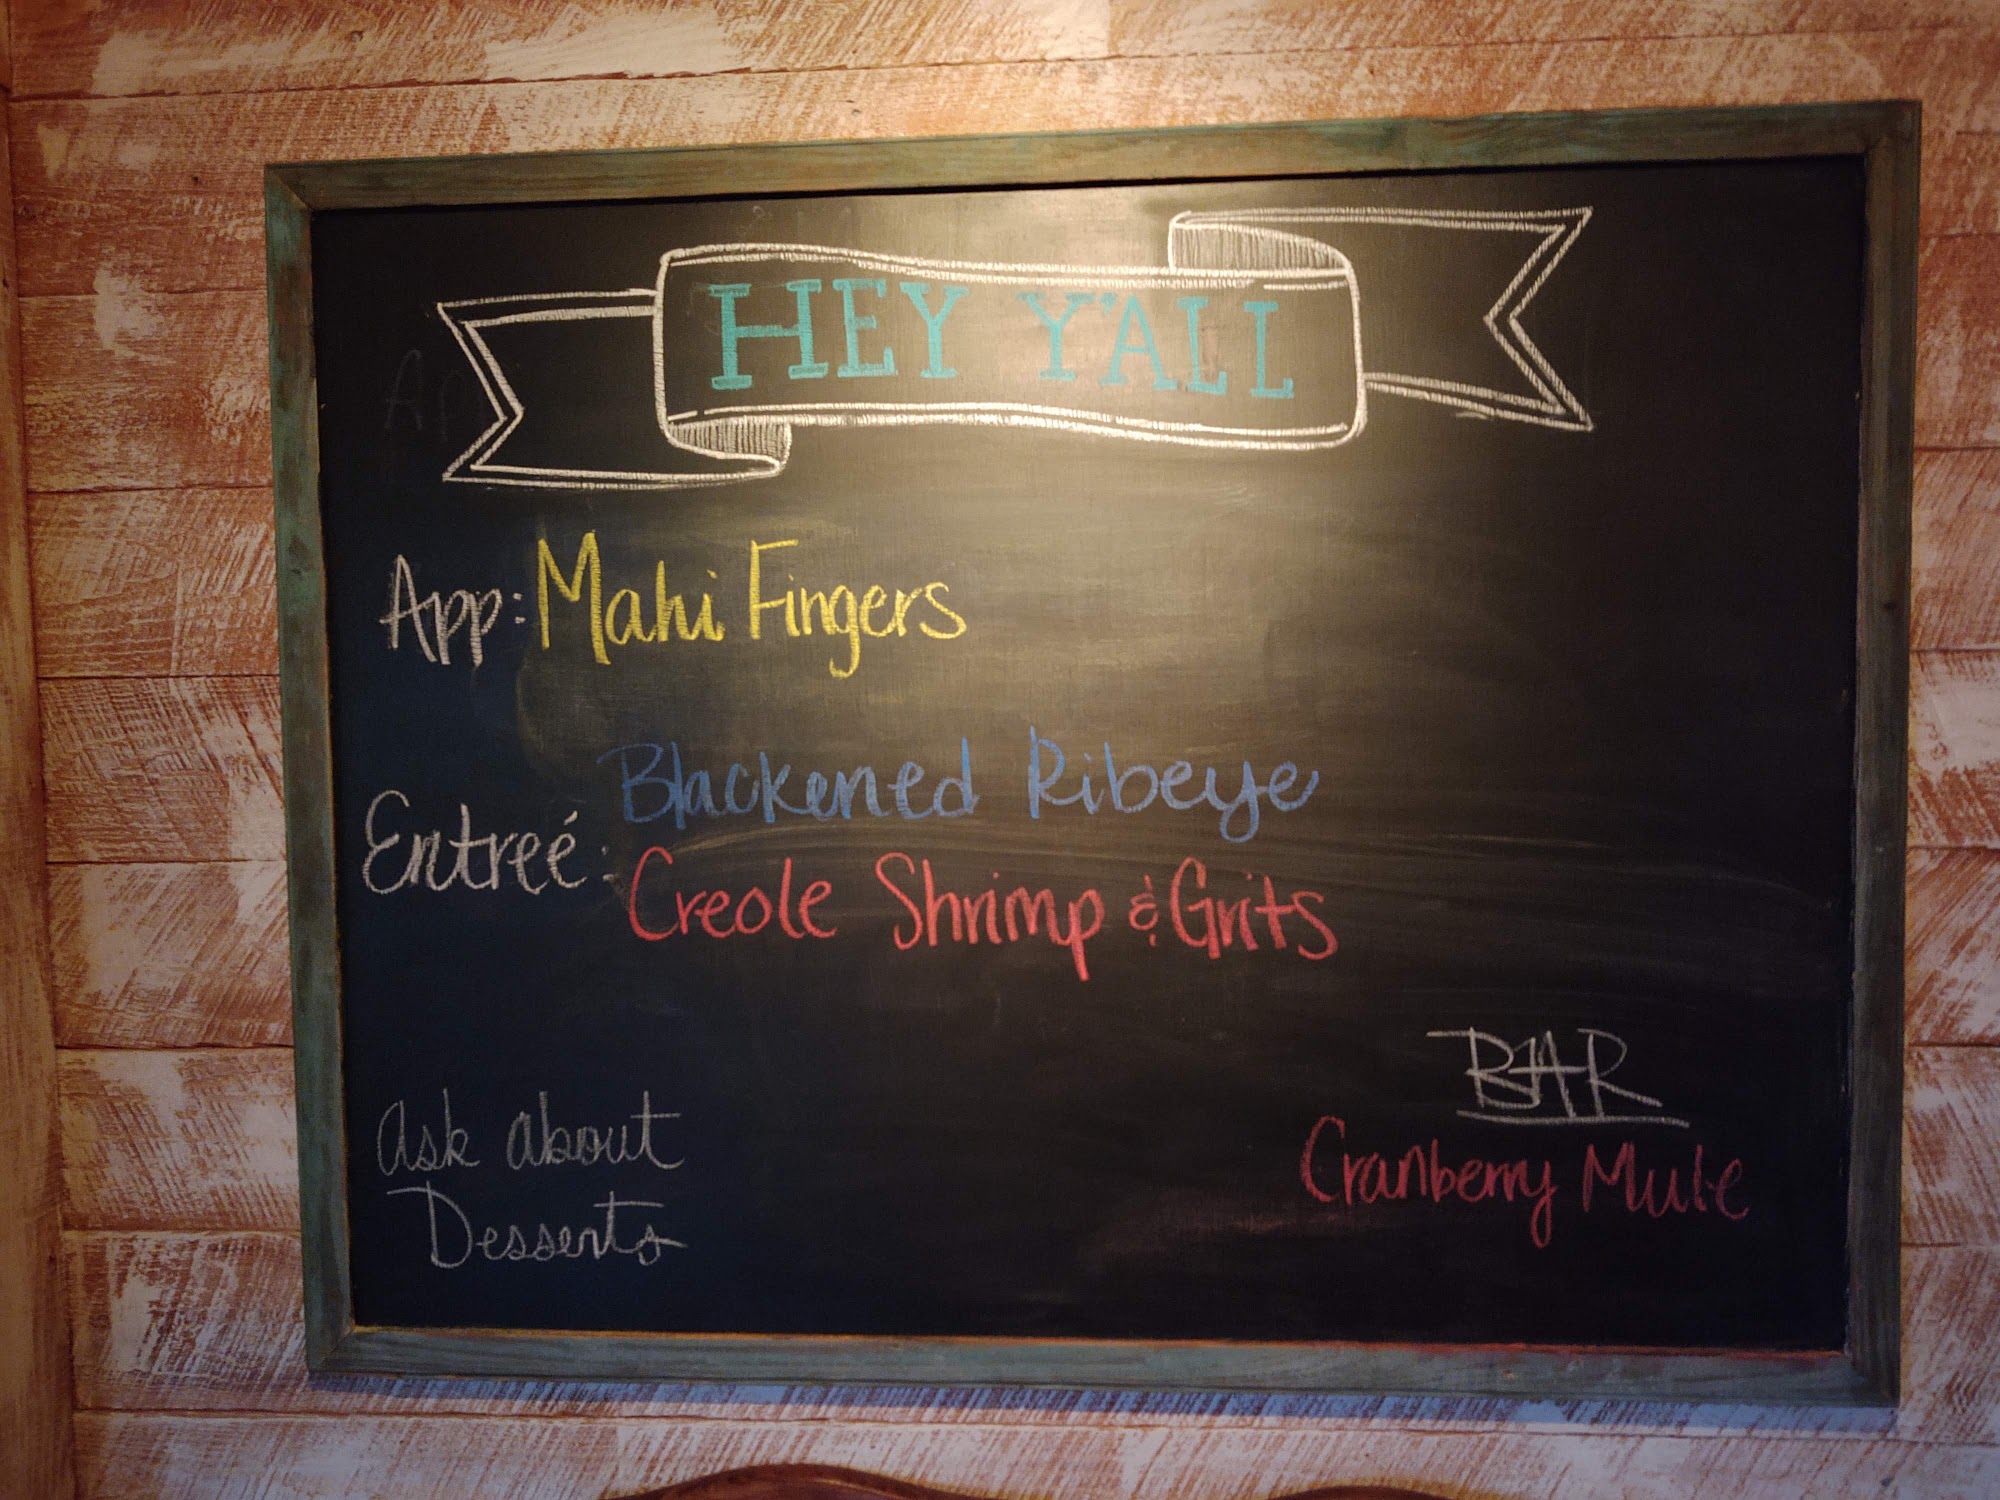 HEY Y'ALL
App: Mahi Fingers
Blackened Ribeye
Entreé:
Creole Shrimp & Grits
Ask about
Desserts
BAR
Cranberry Mule